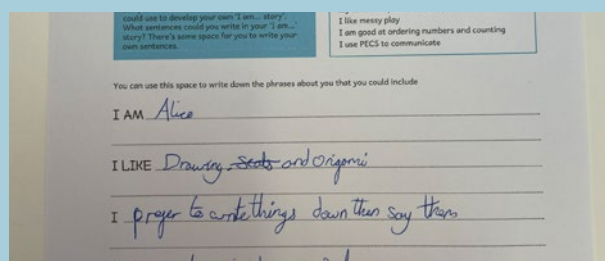 could use to develop your own 'I am... story'.
What sentences could you write in your 'I am...'
story? There's some space for you to write your
own sentences.
I like messy play
I am good at ordering numbers and counting
I use PECS to communicate
You can use this space to write down the phrases about you that you could include
I AM Alice
I LIKE Drawing, and Origami
I prefer to write things down then say them